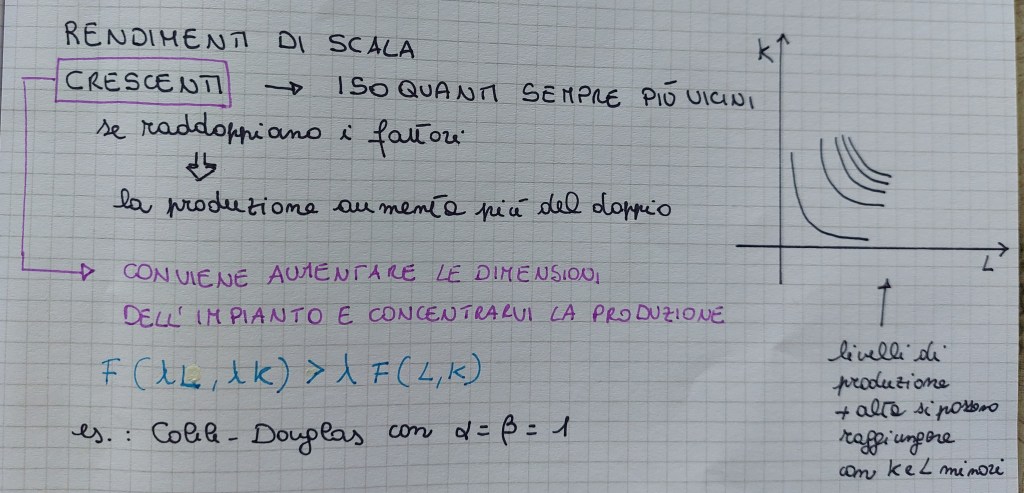 RENDIMENTI DI SCALA
CRESCENTI → ISOQUANTI SEMPRE PIÙ VICINI
se raddoppiano i fattori
⇓
la produzione aumenta più del doppio
CONVIENE AUMENTARE LE DIMENSIONI
DELL'IMPIANTO E CONCENTRARVI LA PRODUZIONE
F(λL, λK) > λF(L,K)
es.: Cobb-Douglas con α = β = 1
K
L
livelli di
produzione
+ alta si possono
raggiungere
con K e L minori